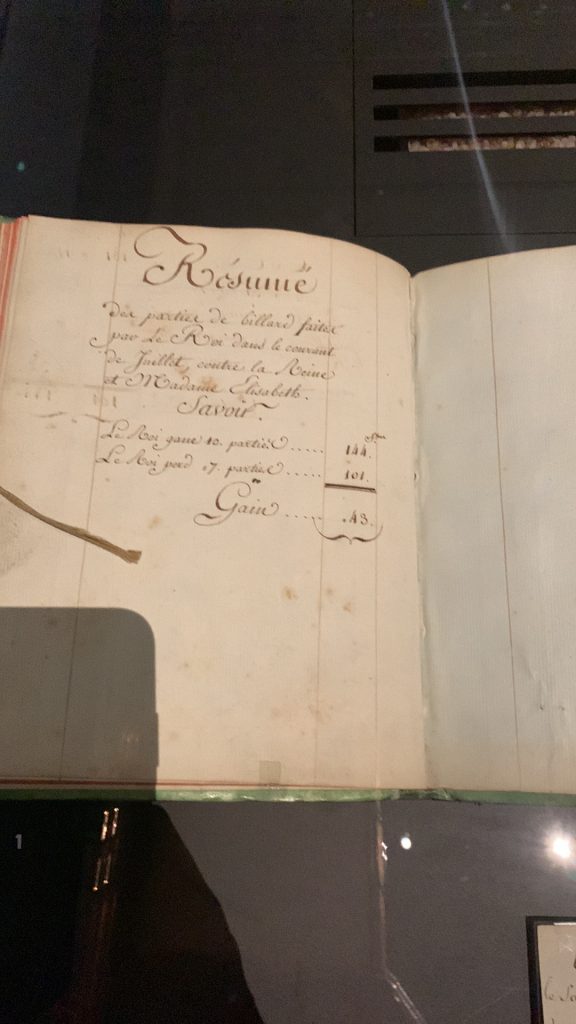 Résumé
des parties de billard faites
par Le Roi dans le courant
de Juillet, contre la Reine
et Madame Elisabeth.
Savoir.
Le Roi gane 10. parties ..... 144.
Le Roi perd 17. parties ..... 101.
Gain ..... 43.
1